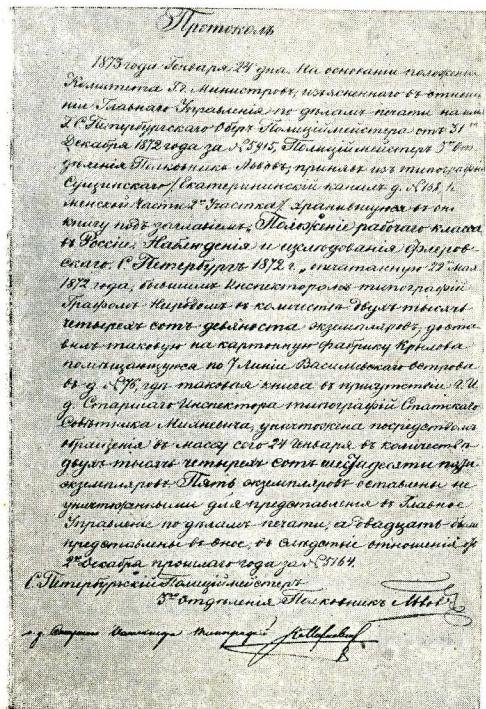 Протоколъ
1873 года Генваря 24 дня. На основаніи положенія
Комитета Гг. Министровъ, изъясненнаго въ отноше
ніи Главнаго Управленія по дѣламъ печати на имя
С.Петербургскаго Оберъ Полицiймейстера отъ 31
Декабря 1872 года за № 5915, Полицiймейстеръ 3го От
дѣленія Полковникъ Львовъ, принявъ изъ типографіи
Сущинскаго /Екатерининскій каналъ д. № 168,
менской Части 2го Участка/ хранившуюся въ оной
книгу подъ заглавіемъ „Положеніе рабочаго класса
въ Россіи. Наблюденія и изслѣдованія Флеров
скаго. С.Петербургъ 1872 г.," опечатанную 29го Мая
1872 года, бывшимъ Инспекторомъ типографій
Графомъ Ниродомъ въ количествѣ двухъ тысячъ
четырехъ сотъ девяноста экземпляровъ, доста
вилъ таковую на картонную фабрику Крылова
помѣщающуюся по 7 Линіи Васильевскаго острова
въ д. № 76, гдѣ таковая книга въ присутствіи Г. И.
д. Старшаго Инспектора типографій Статскаго
Совѣтника Милкевича, уничтожена посредствомъ
обращенія въ массу сего 24 Января въ количествѣ
двухъ тысячъ четырехъ сотъ шестидесяти пяти
экземпляровъ. Пять экземпляровъ оставлены не
уничтоженными для представленія въ Главное
Управленіе по дѣламъ печати, а двадцать были
представлены въ оное, въ слѣдствіе отношенія
2го Декабря прошлаго года за № 5164.
С.Петербургскій Полицiймейстеръ
3го Отдѣленія Полковникъ Львовъ